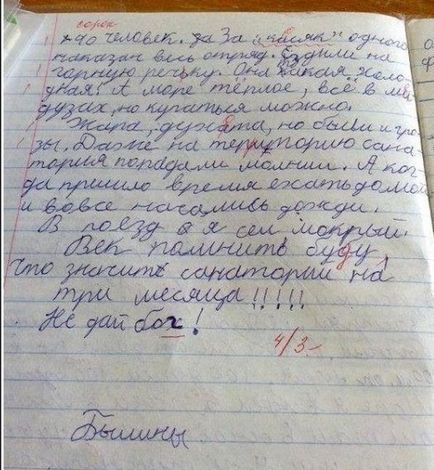 сорок
40 человек. За "касяк" одного
наказан весь отряд. Ездили на
горную речьку. Она такая холо
дная! А море тёплое, всё в ме
дузах, но купаться можно.
Жара, духота, но были и гро
зы. Даже на территорию сана
тория попадали молнии. А ког
да пришло время ехать домой
и вовсе начались дожди.
В поезд я сел мокрый.
Век помнить буду,
что значить санаторий на
три месяца!!!!!
Не дай бог!
4/3-
Былины